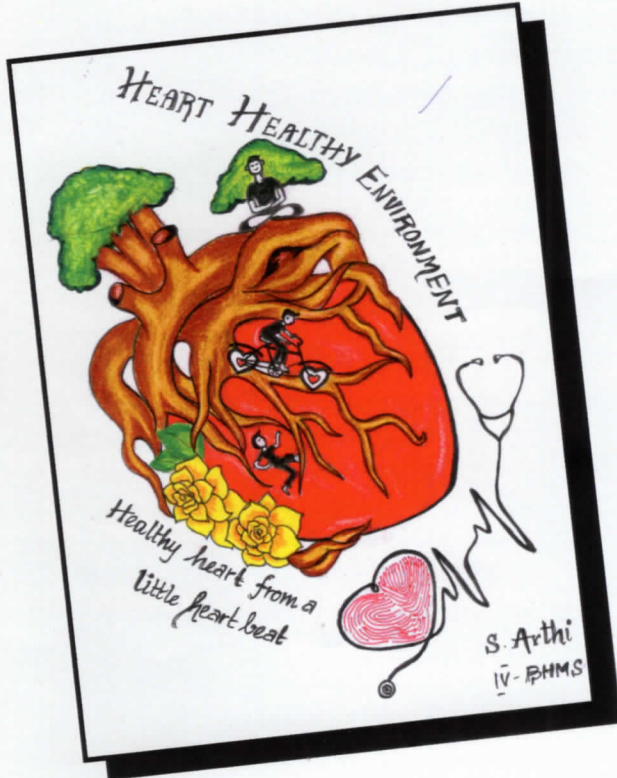 HEART HEALTHY ENVIRONMENT
Healthy heart from a
little heart beat
S. Arthi
IV - BHMS